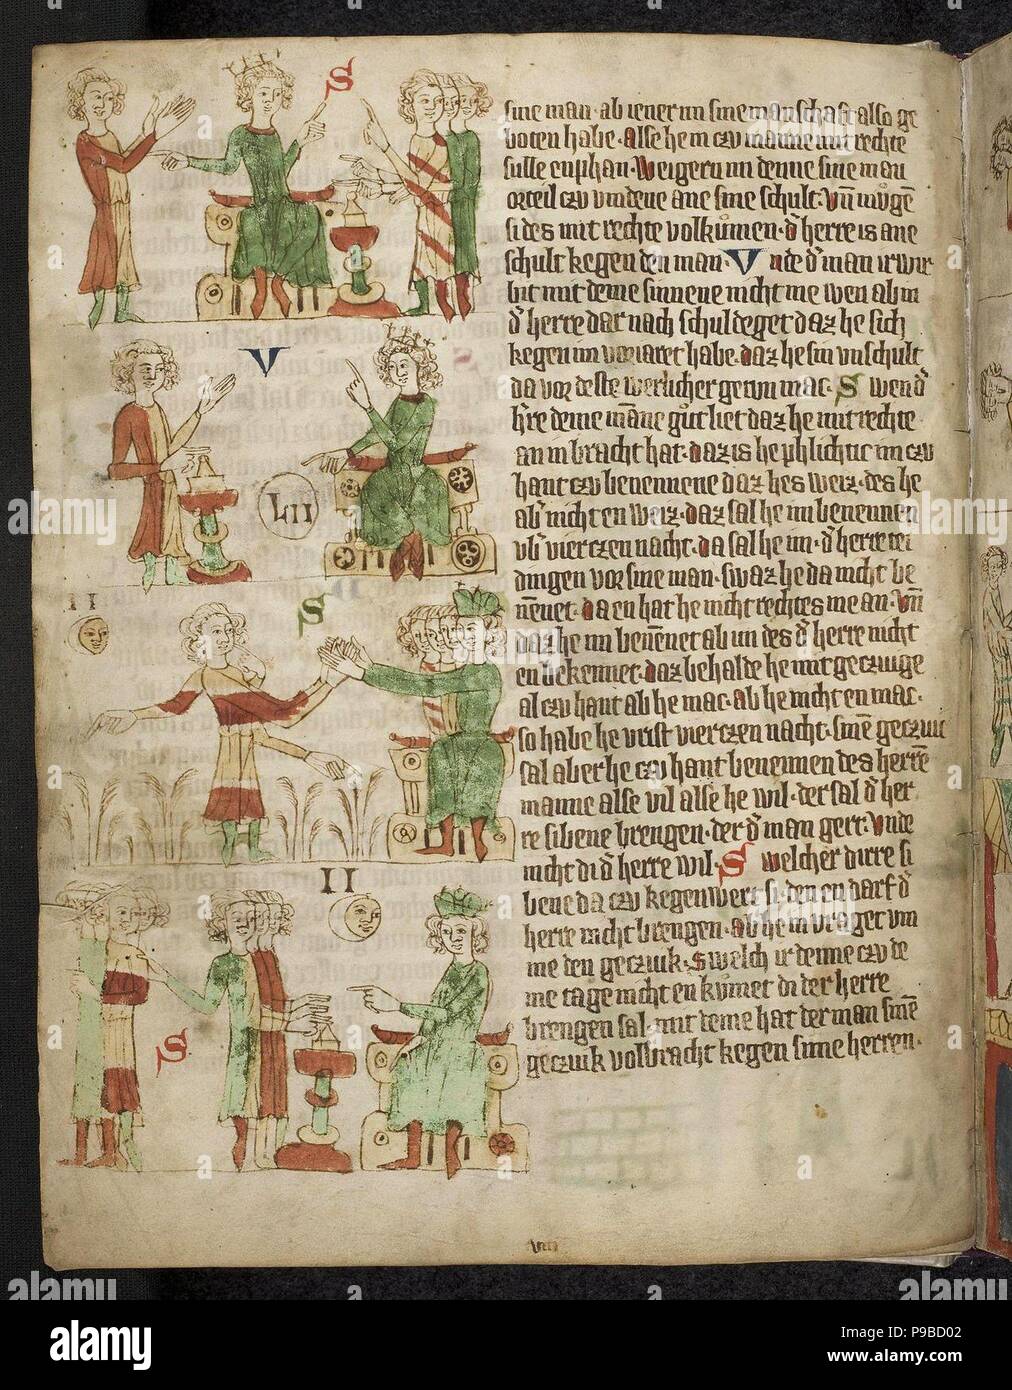 sine man · ab iener im sine manschaft also ge
boten habe · alse he im czu manne mit rechte
sulle enphan · Weigern im denne sine man
orteil czu vindene ane sine schult · Vn̄ mugē
si des mit rechte volkumen · d' herre is ane
schult kegen den man · Vnde d' man irwir
bit mit deme sinnene nicht me wen ab in
d' herre dar nach schuldeget daz he sich
kegen im voriaret habe · daz he sin vnschult
da vor deste werlicher getun mac · Swen d'
h're deme māne gut liet daz he mit rechte
an in bracht hat · daz is he phlichtic im czu
hant czu benennene daz hes weiz · des he
ab' nicht en weiz · daz sal he im benennen
vb' vierczen nacht · da sal he im · d' herre tei
dingen vor sine man · swaz he da nicht be
nēnet · da en hat he nicht rechtes me an · Vn̄
daz he im benēnet ab im des d' herre nicht
en bekennet · daz behalde he mit geczuge
al czu hant ab he mac · ab he nicht en mac ·
so habe he vrist vierczen nacht · sinē geczuc
sal aber he czu hant benennen des herrē
manne alse vil alse he wil · der sal d' her
re sibene brengen · der d' man gert · vnde
nicht di d' herre wil · Swelcher dirre si
bene da czu kegenwert si · den en darf d'
herre nicht brengen · ab he in vraget vm
me den geczuik · swelch ir denne czu de
me tage nicht en kumet di der herre
brengen sal · mit deme hat der man sinē
geczuik volbracht kegen sime herren ·
S
V
LII
II
S
II
S
VIII
alamy
Image ID: P9BD02
www.alamy.com